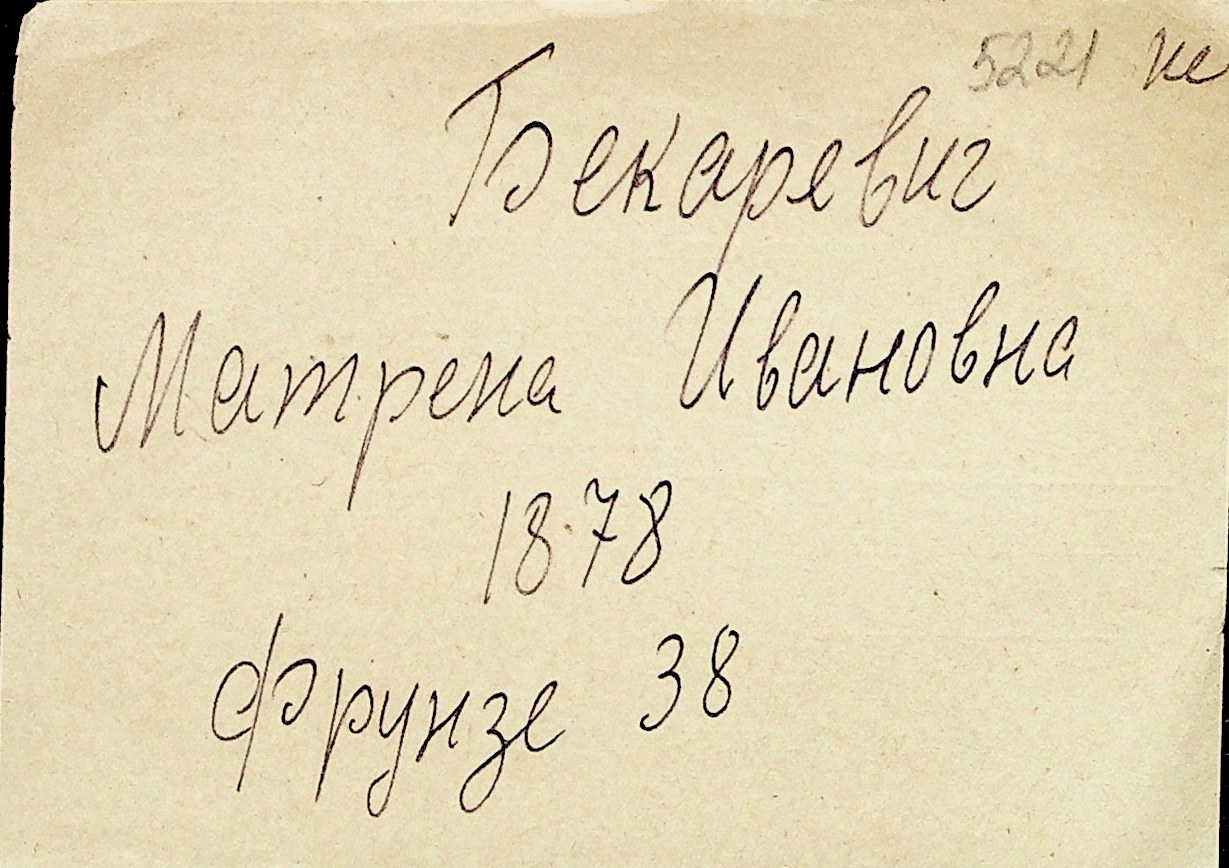 5221 кс
Бекаревич
Матрена Ивановна
1878
Фрунзе 38